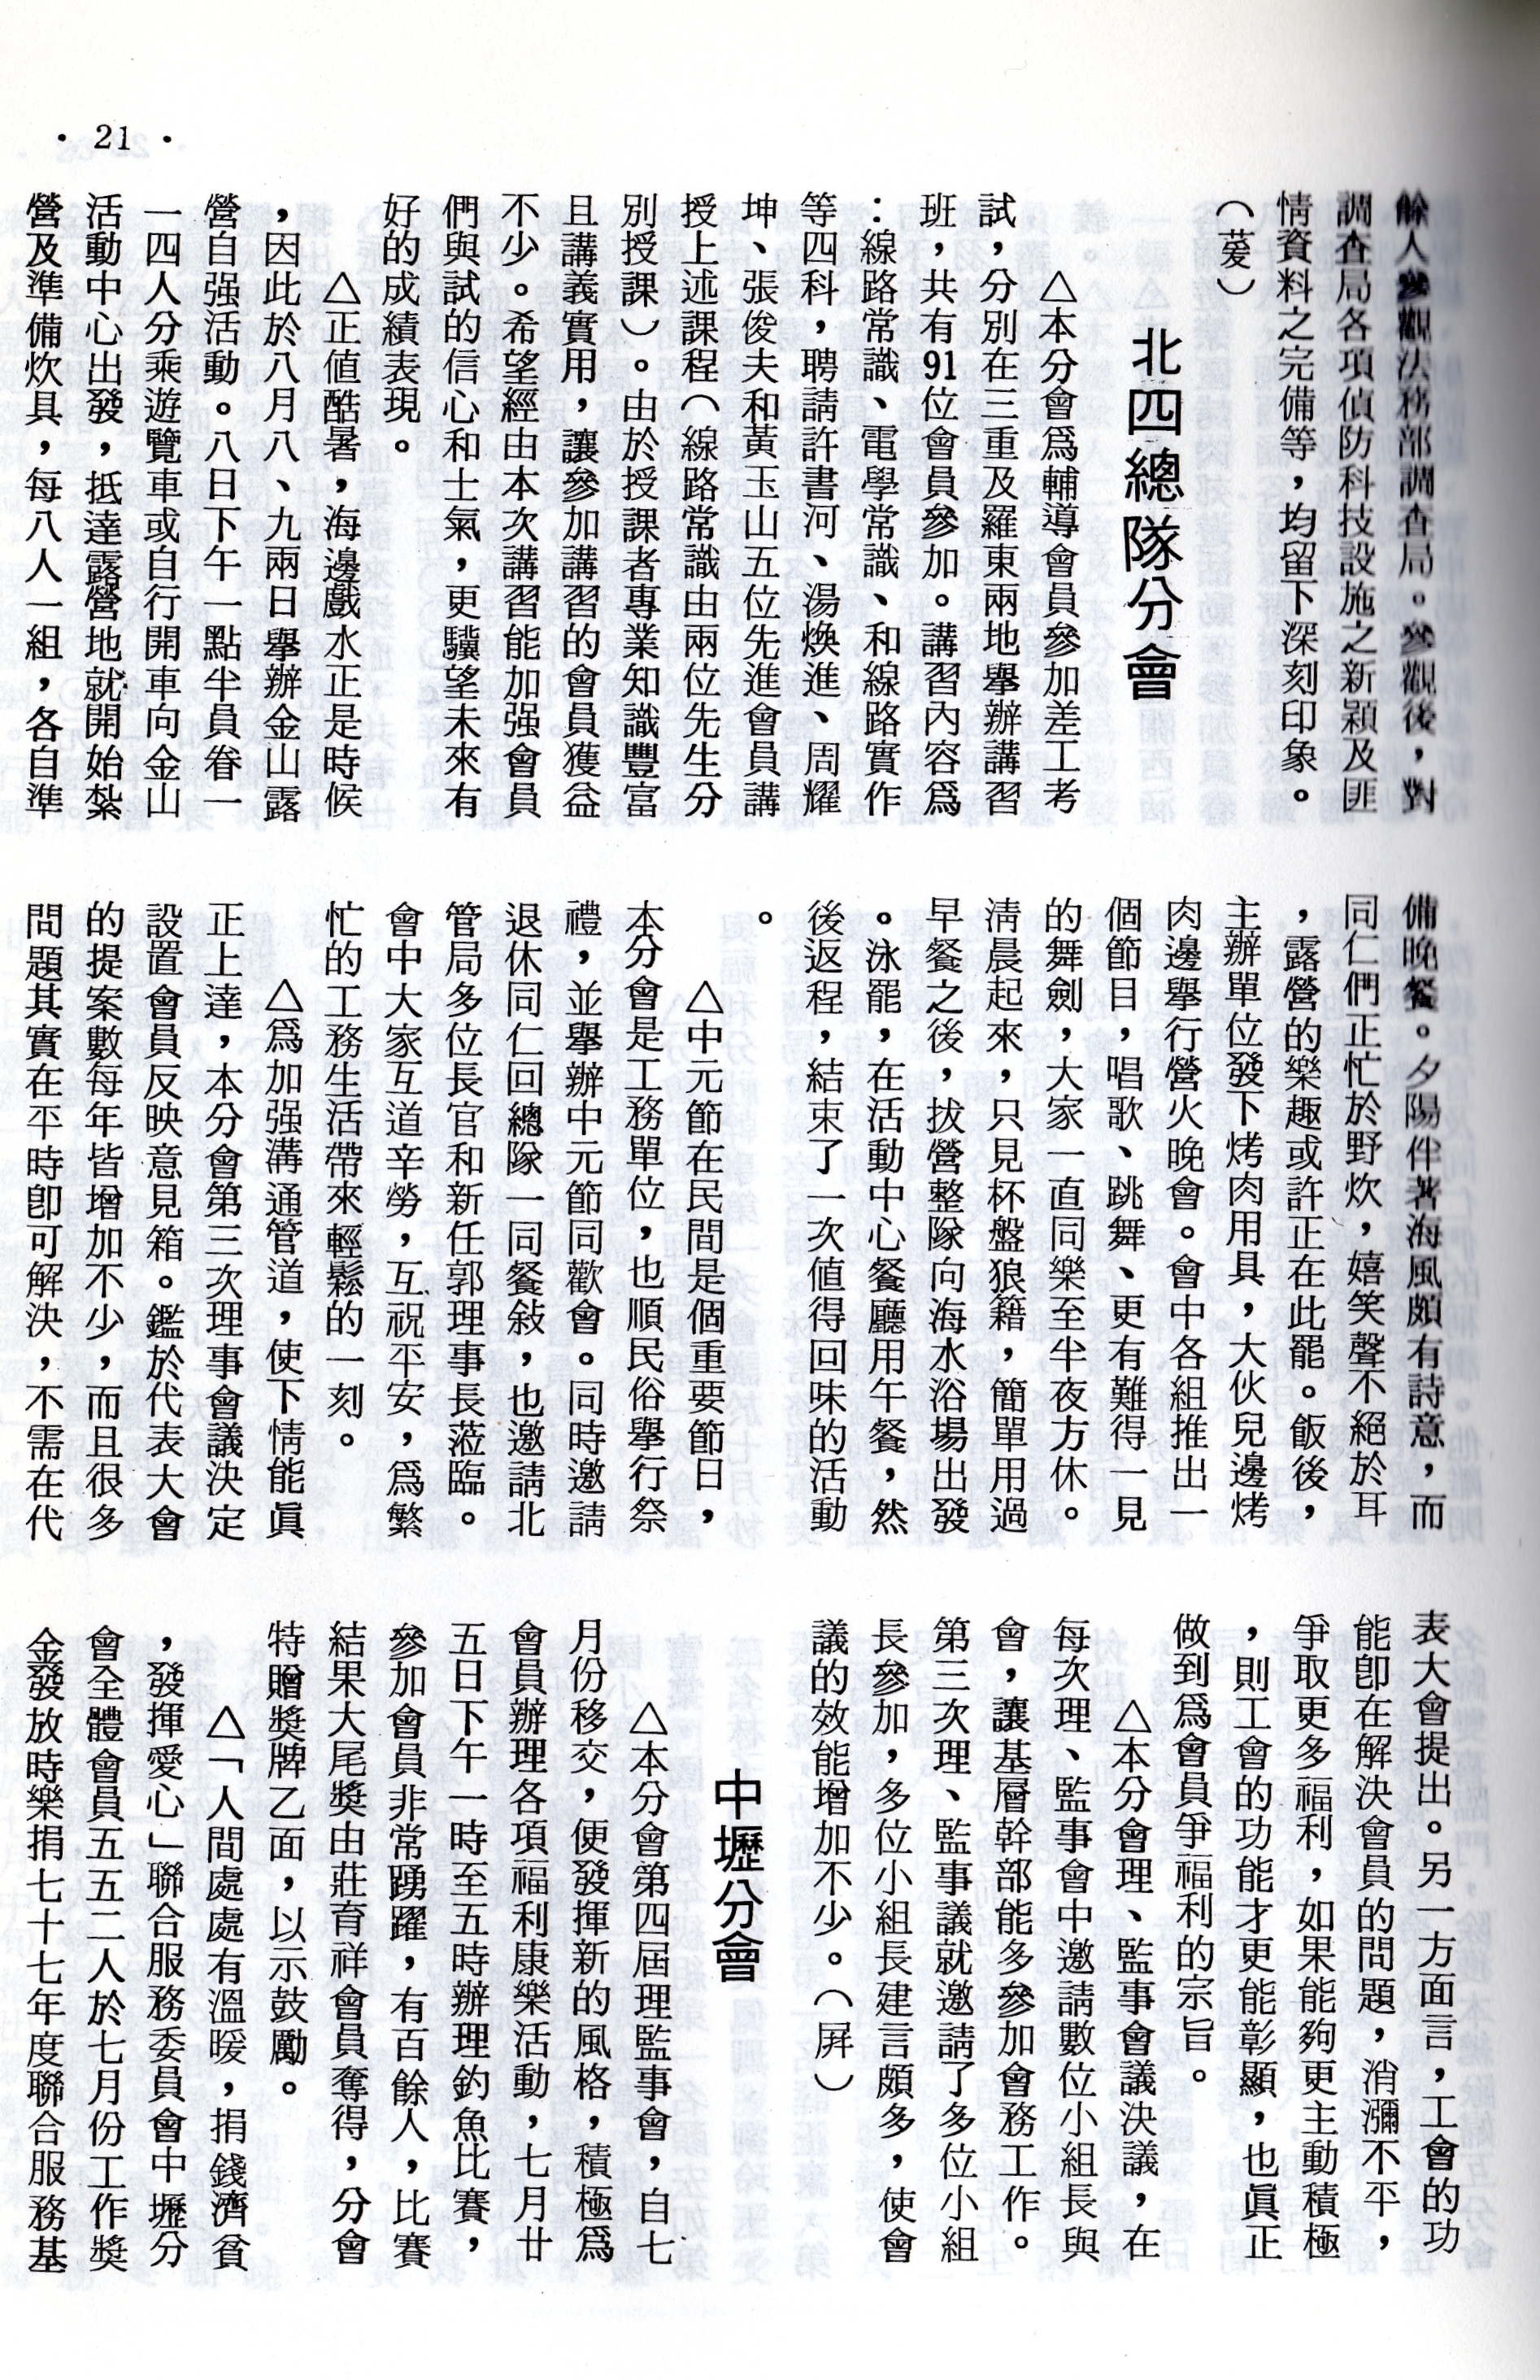 餘人參觀法務部調查局。參觀後，對
調查局各項偵防科技設施之新穎及匪
情資料之完備等，均留下深刻印象。
（萲）
北四總隊分會
△本分會爲輔導會員參加差工考
試，分別在三重及羅東兩地舉辦講習
班，共有91位會員參加。講習內容爲
：線路常識、電學常識、和線路實作
等四科，聘請許書河、湯煥進、周耀
坤、張俊夫和黃玉山五位先進會員講
授上述課程（線路常識由兩位先生分
別授課）。由於授課者專業知識豐富
且講義實用，讓參加講習的會員獲益
不少。希望經由本次講習能加强會員
們與試的信心和士氣，更驥望未來有
好的成績表現。
△正值酷暑，海邊戲水正是時候
，因此於八月八、九兩日舉辦金山露
營自强活動。八日下午一點半員眷一
一四人分乘遊覽車或自行開車向金山
活動中心出發，抵達露營地就開始紮
營及準備炊具，每八人一組，各自準
備晚餐。夕陽伴著海風頗有詩意，而
同仁們正忙於野炊，嬉笑聲不絕於耳
，露營的樂趣或許正在此罷。飯後，
主辦單位發下烤肉用具，大伙兒邊烤
肉邊舉行營火晚會。會中各組推出一
個節目，唱歌、跳舞、更有難得一見
的舞劍，大家一直同樂至半夜方休。
淸晨起來，只見杯盤狼籍，簡單用過
早餐之後，拔營整隊向海水浴場出發
。泳罷，在活動中心餐廳用午餐，然
後返程，結束了一次值得回味的活動
。
△中元節在民間是個重要節日，
本分會是工務單位，也順民俗舉行祭
禮，並舉辦中元節同歡會。同時邀請
退休同仁回總隊一同餐敍，也邀請北
管局多位長官和新任郭理事長蒞臨。
會中大家互道辛勞，互祝平安，爲繁
忙的工務生活帶來輕鬆的一刻。
△爲加强溝通管道，使下情能眞
正上達，本分會第三次理事會議決定
設置會員反映意見箱。鑑於代表大會
的提案數每年皆增加不少，而且很多
問題其實在平時卽可解決，不需在代
表大會提出。另一方面言，工會的功
能卽在解決會員的問題，消瀰不平，
爭取更多福利，如果能夠更主動積極
，則工會的功能才更能彰顯，也眞正
做到爲會員爭福利的宗旨。
△本分會理、監事會議決議，在
每次理、監事會中邀請數位小組長與
會，讓基層幹部能多參加會務工作。
第三次理、監事議就邀請了多位小組
長參加，多位小組長建言頗多，使會
議的效能增加不少。（屛）
中壢分會
△本分會第四屆理監事會，自七
月份移交，便發揮新的風格，積極爲
會員辦理各項福利康樂活動，七月廿
五日下午一時至五時辦理釣魚比賽，
參加會員非常踴躍，有百餘人，比賽
結果大尾獎由莊育祥會員奪得，分會
特贈獎牌乙面，以示鼓勵。
△「人間處處有溫暖，捐錢濟貧
，發揮愛心」聯合服務委員會中壢分
會全體會員五五二人於七月份工作獎
金發放時樂捐七十七年度聯合服務基
· 21 ·